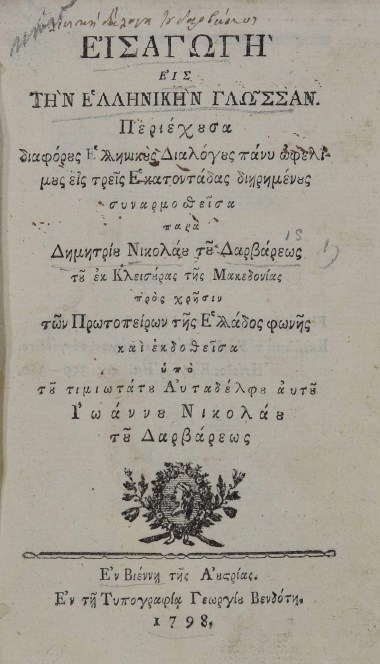 ΕἸΣΑΓΩΓῊ
ΕἸΣ
ΤῊΝ ἙΛΛΗΝΙΚῊΝ ΓΛΩ͂ΣΣΑΝ.
Περιέχȣσα
διαφόρȣς Ἑλληνικȣ̀ς Διαλόγȣς πάνυ ὠφελί-
μȣς εἰς τρεῖς Ἑκατοντάδας διῃρημένȣς
συναρμοσθεῖσα
παρὰ
Δημητρίȣ Νικολάȣ τȣ͂ Δαρβάρεως
τȣ͂ ἐκ Κλεισȣ́ρας τῆς Μακεδονίας
πρὸς χρῆσιν
τῶν Πρωτοπείρων τῆς Ἑλλάδος φωνῆς
καὶ ἐκδοθεῖσα
ὑπὸ
τȣ͂ τιμιωτάτȣ Αὐταδέλφȣ αὐτȣ͂
Ἰωάννȣ Νικολάȣ
τȣ͂ Δαρβάρεως
Ἐν Βιέννῃ τῆς Αὐϛρίας.
Ἐν τῇ Τυπογραφίᾳ Γεωργίȣ Βενδότη.
1798.